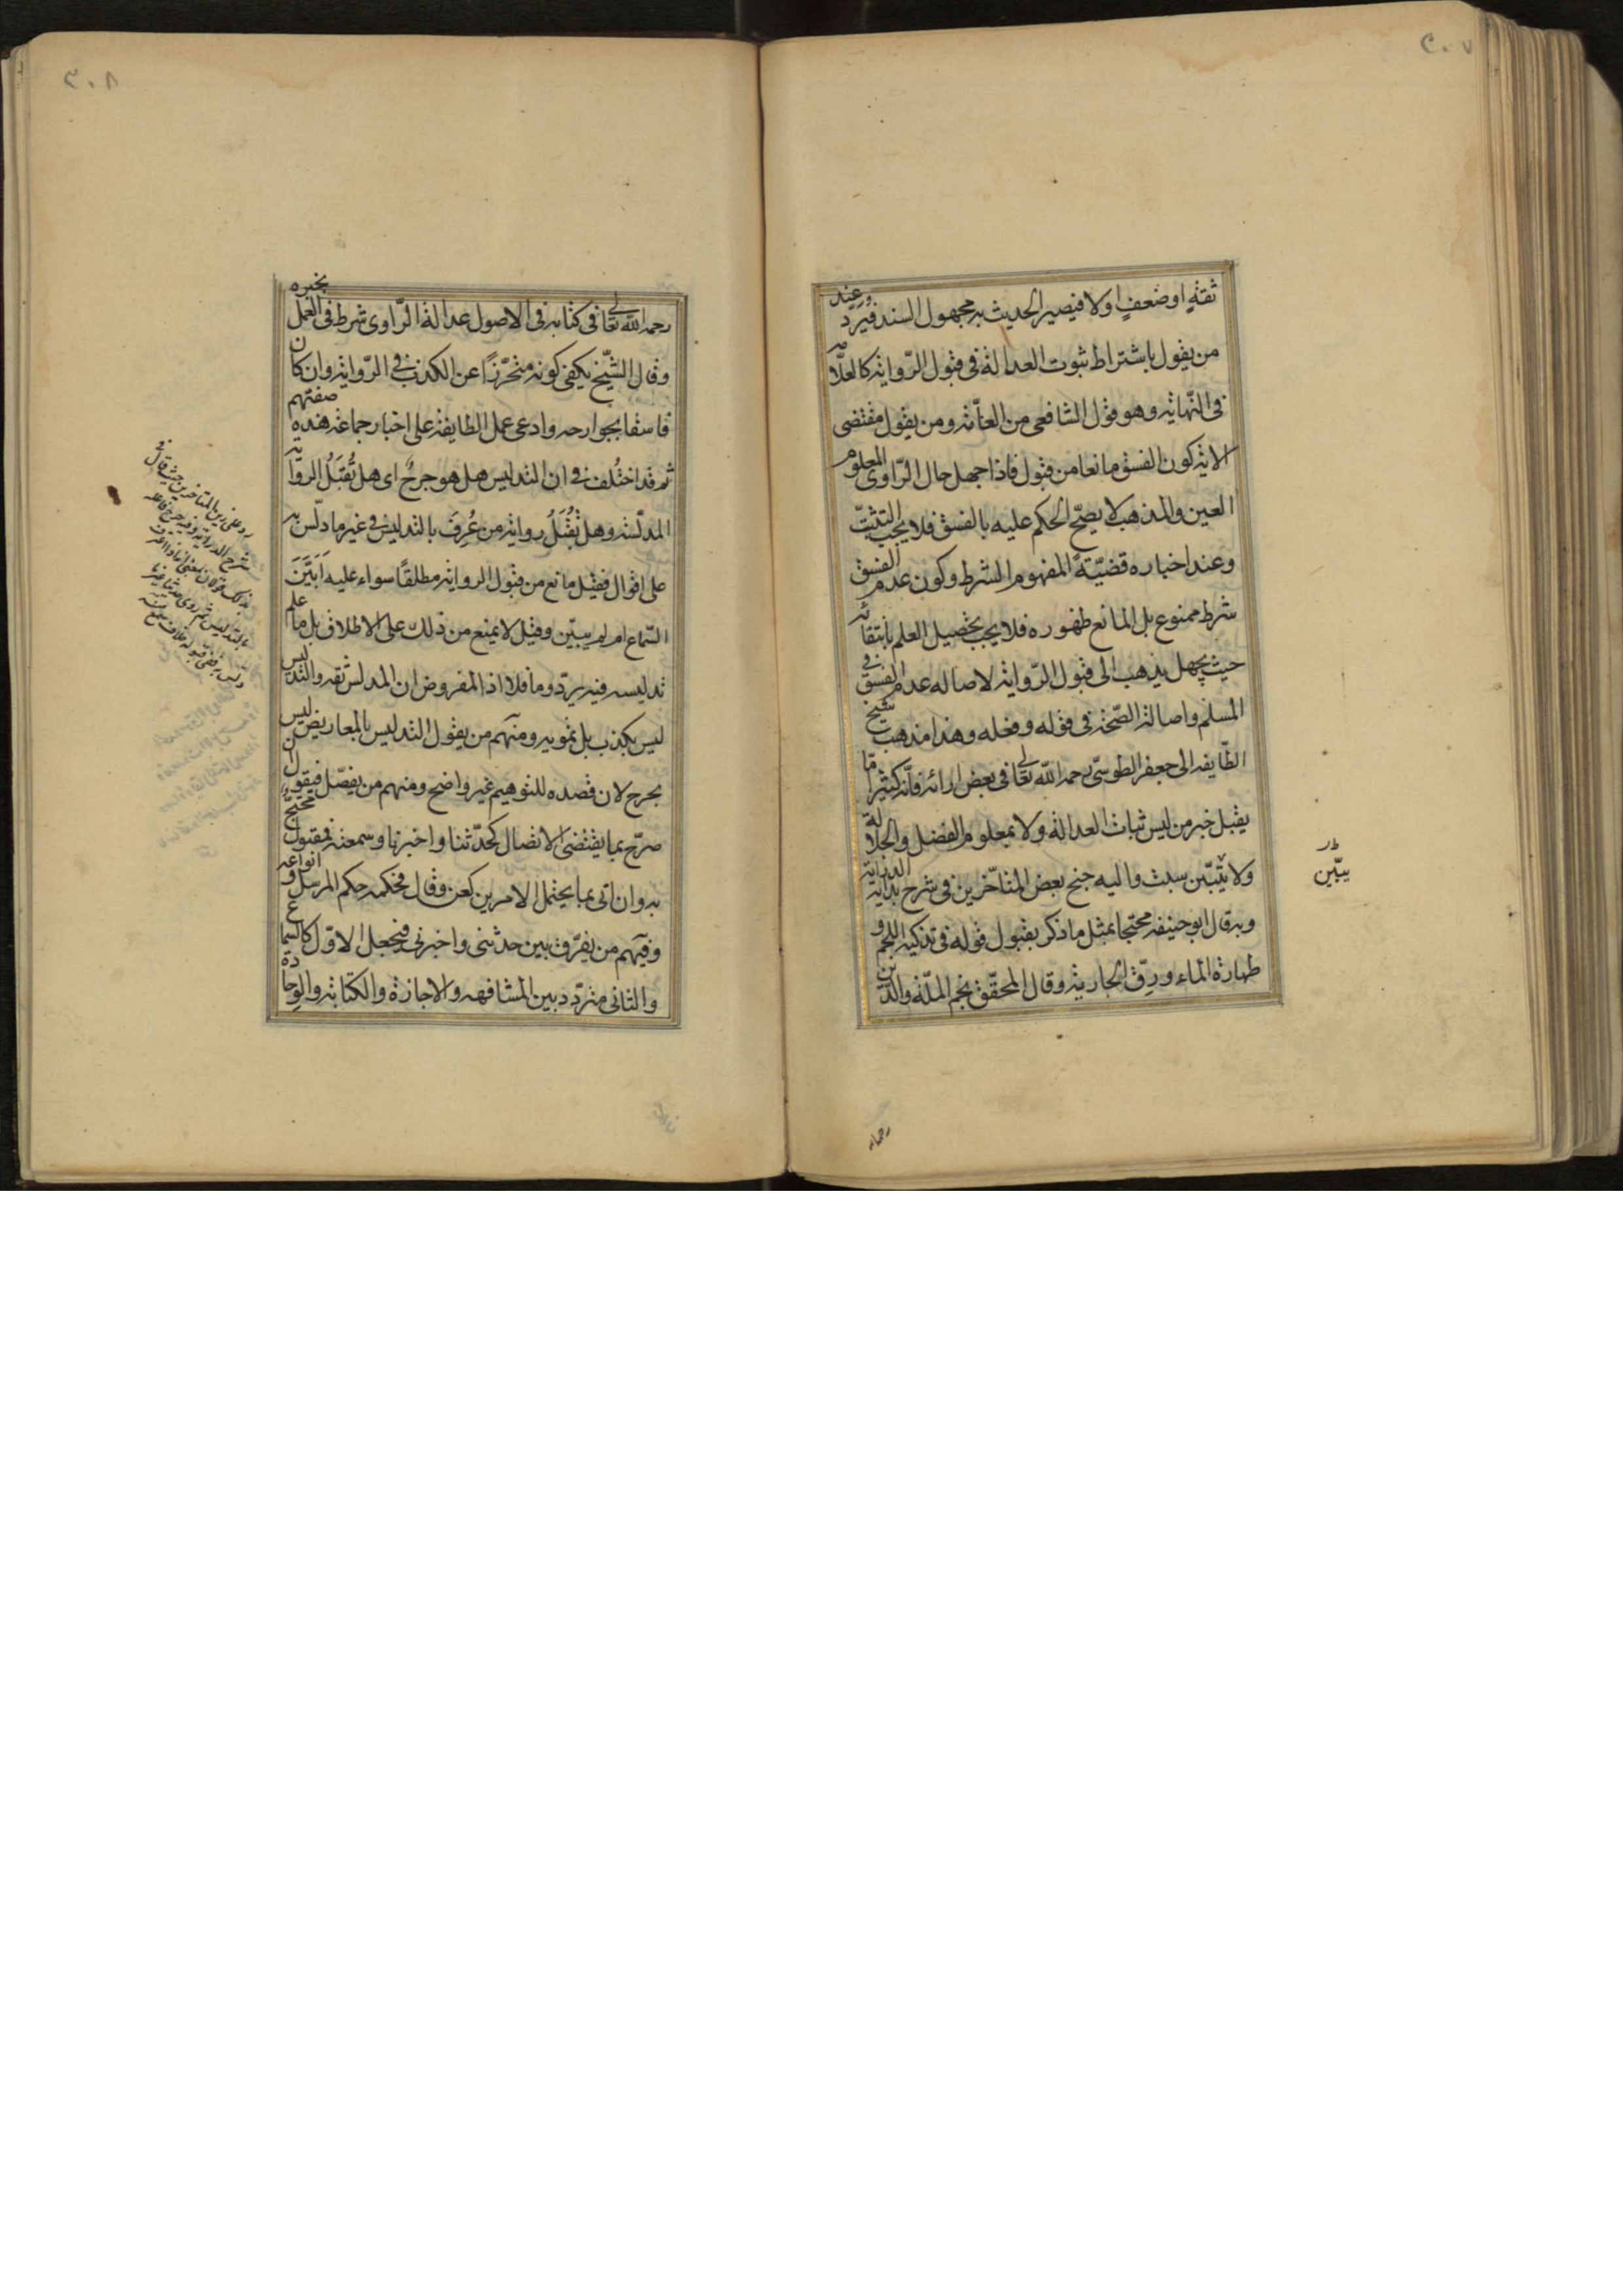 ٣٠٧
ثقةٍ او ضعفٍ اولا فيصير الحديث به مجهول السند فيُرَدّ عند
من يقول باشتراط ثبوت العدالة فى قبول الرّواية كالعلّامه
فى النّهاية وهو قول الشافعى من العامّة ومن يقول مقتضى
الاية كون الفسق مانعا من قبول فاذا جهل حال الرّاوى المعلوم
العين والمذهب لا يصحّ الحكم عليه بالفسق فلا يجب التثبّت
وعند اخباره قضيّةً المفهوم الشرط وكون عدم الفسق
شرط ممنوع بل المانع ظهوره فلا يجب تحصيل العلم بانتفائه
حيث يجهل يذهب الى قبول الرّواية لاصاله عدم الفسق فى
المسلم واصالة الصّحة فى قوله وفعله وهذا مذهب شيخ
الطّايفه ابى جعفر الطوسىّ رحمه اللّه تعالى فى بعض ارائه فانّه كثيرا ما
يقبل خبر من ليس ثبات العدالة ولا بمعلوم الفضل والجلالة
ولا يتبيّن سبت واليه جنح بعض المتاخّرين فى شرح بداية الدراية
وبه قال ابو حنيفه محتجا بمثل ما ذكر بقبول قوله فى تذكيه اللحم و
طهارة الماء ورِقّ الجارية وقال المحقّق نجم الملّة والدّين
يبّين
رحمه
٣٠٨
رحمه اللّه تعالى فى كتابه فى الاصول عدالة الرّاوى شرط فى العمل بخبره
وقال الشيّخ يكفى كونه متحرّزًا عن الكذب فى الرّواية وان كان
فاسقا بجوارحه وادعى عمل الطايفة على اخبار جماعة هذه صفتهم
ثم قد اختُلف فى ان التدليس هل هو جرحٌ اى هل تُقبَلُ الرواية
المدلّسة وهل تُقُبَلُ رواية من عُرِفَ بالتدليس فى غير ما دلّس به
على اقوال فقيل مانع من قبول الرواية مطلقًا سواء عليه اَبَيَّنَ
السّماع ام لم يبيّن وقيل لا يمنع من ذلك على الاطلاق بل ما علم
تدليسه فيه يردّ وما فلا اذ المفروض ان المدلس ثقه والتدليس
ليس بكذب بل تمويه ومنهم من يقول التدليس بالمعاريض ليس
بجرح لان قصده للتوهيم غير واضح ومنهم من يفصّل فيقول ان
صرّح بما يقتضى الاتصال كحدّثنا واخبرنا وسمعته فمقبول محتجٌّ
به وان اتى بما يحتمل الامرين كعن وقال فحكمه حكم المرسل وانواعه
وفيهم من يفرّق بين حدثنى واخبرنى فيجعل الاوّل كالسماع
والثانى متردّد بين المشافهه والاجازة والكتابة والوجادة
رد على زين المتاخرين حيث قال فى
شرح الدراية